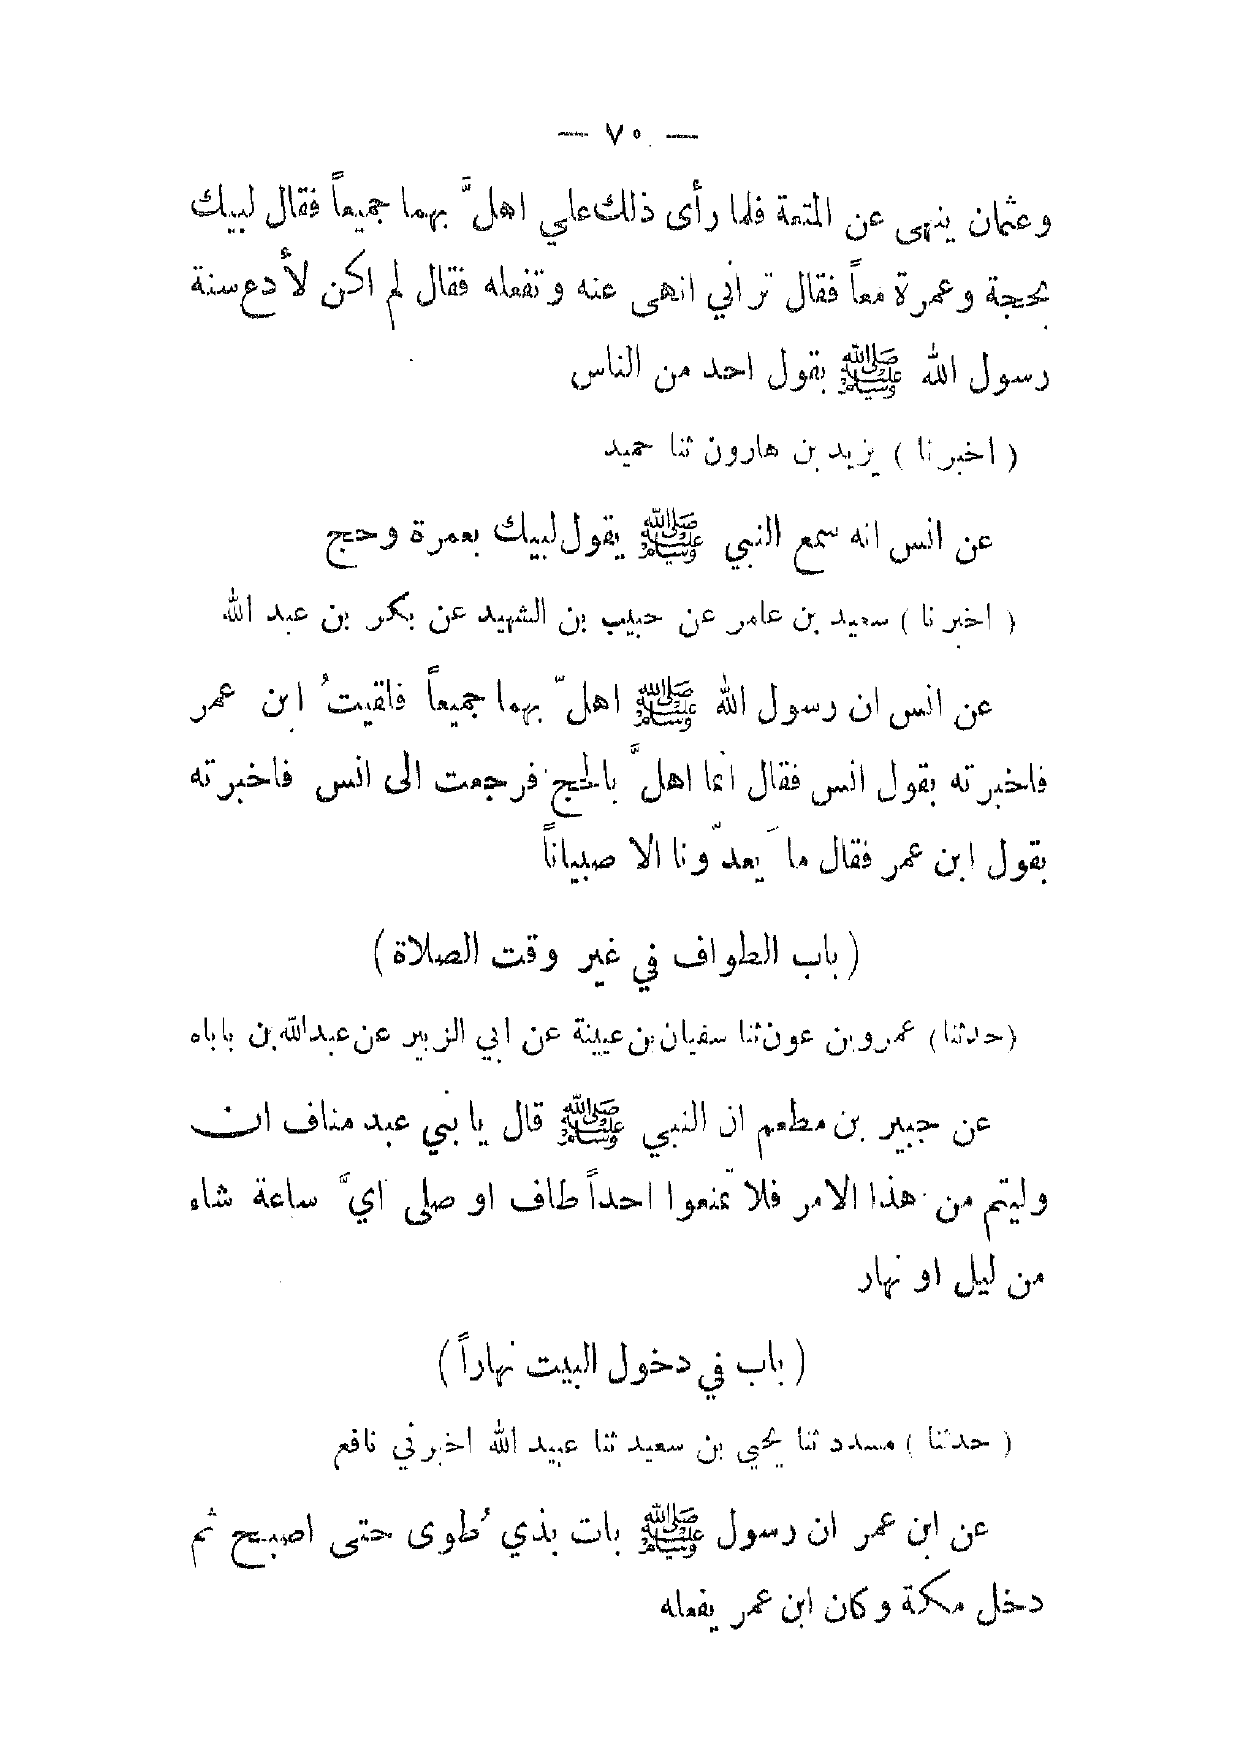 — ٧٠ —
وعثمان ينهى عن المتعة فلما رأى ذلك علي اهلَّ بهما جميعاً فقال لبيك
بحجة وعمرة معاً فقال تراني انهى عنه وتفعله فقال لم اكن لأدع سنة
رسول الله ﷺ بقول احد من الناس
( اخبرنا ) يزيد بن هارون ثنا حميد
عن انس انه سمع النبي ﷺ يقول لبيك بعمرة وحج
( اخبرنا ) سعيد بن عامر عن حبيب بن الشهيد عن بكر بن عبد الله
عن انس ان رسول الله ﷺ اهلّ بهما جميعاً فلقيتُ ابن عمر
فاخبرته بقول انس فقال انما اهلَّ بالحج فرجعت الى انس فاخبرته
بقول ابن عمر فقال ما يَعدّوننا الا صبياناً
( باب الطواف في غير وقت الصلاة )
(حدثنا) عمرو بن عون ثنا سفيان بن عيينة عن ابي الزبير عن عبد الله بن باباه
عن جبير بن مطعم ان النبي ﷺ قال يا بني عبد مناف ان
وليتم من هذا الامر فلا تمنعوا احداً طاف او صلى ايَّ ساعة شاء
من ليل او نهار
( باب في دخول البيت نهاراً )
( حدثنا ) مسدد ثنا يحيي بن سعيد ثنا عبيد الله اخبرني نافع
عن ابن عمر ان رسول ﷺ بات بذي طُوى حتى اصبح ثم
دخل مكة وكان ابن عمر يفعله